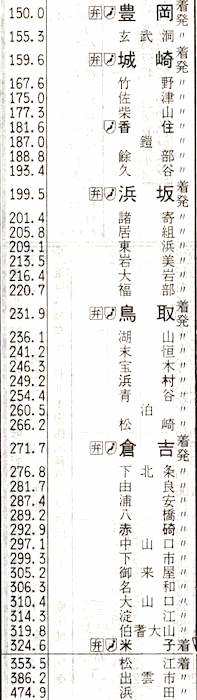 150.0 弁 豊岡 着発
155.3 玄武洞 〃
159.6 弁 城崎 着発
167.6 竹野 〃
175.0 佐津 〃
177.3 柴山 〃
181.6 香住 〃
187.0 鎧 〃
188.8 餘部 〃
193.4 久谷 〃
199.5 弁 浜坂 着発
201.4 諸寄 〃
205.8 居組 〃
209.1 東浜 〃
213.5 岩美 〃
216.4 大岩 〃
220.7 福部 〃
231.9 弁 鳥取 着発
236.1 湖山 〃
241.2 末恒 〃
246.3 宝木 〃
249.2 浜村 〃
254.4 青谷 〃
260.5 泊 〃
266.2 松崎 〃
271.7 弁 倉吉 着発
276.8 下北条 〃
281.7 由良 〃
287.4 浦安 〃
289.2 八橋 〃
292.9 赤碕 〃
297.1 中山口 〃
299.3 下市 〃
305.2 御来屋 〃
306.3 名和 〃
310.4 大山口 〃
314.3 淀江 〃
319.8 伯耆大山 〃
324.6 弁 米子 着
353.5 松江 着
385.9 出雲市 〃
474.9 浜田 〃